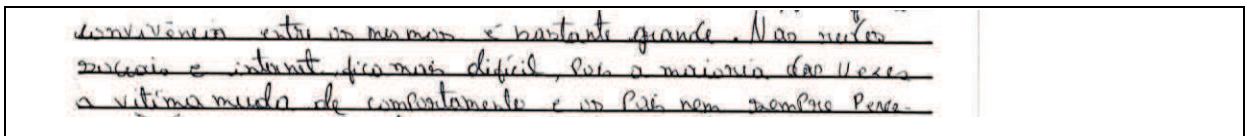 convivência entre os mesmos é bastante grande. Nas redes
sociais e internet fica mais difícil, Pois a maioria das Vezes
a vitima muda de comportamento e os Pais nem sempre Perce-